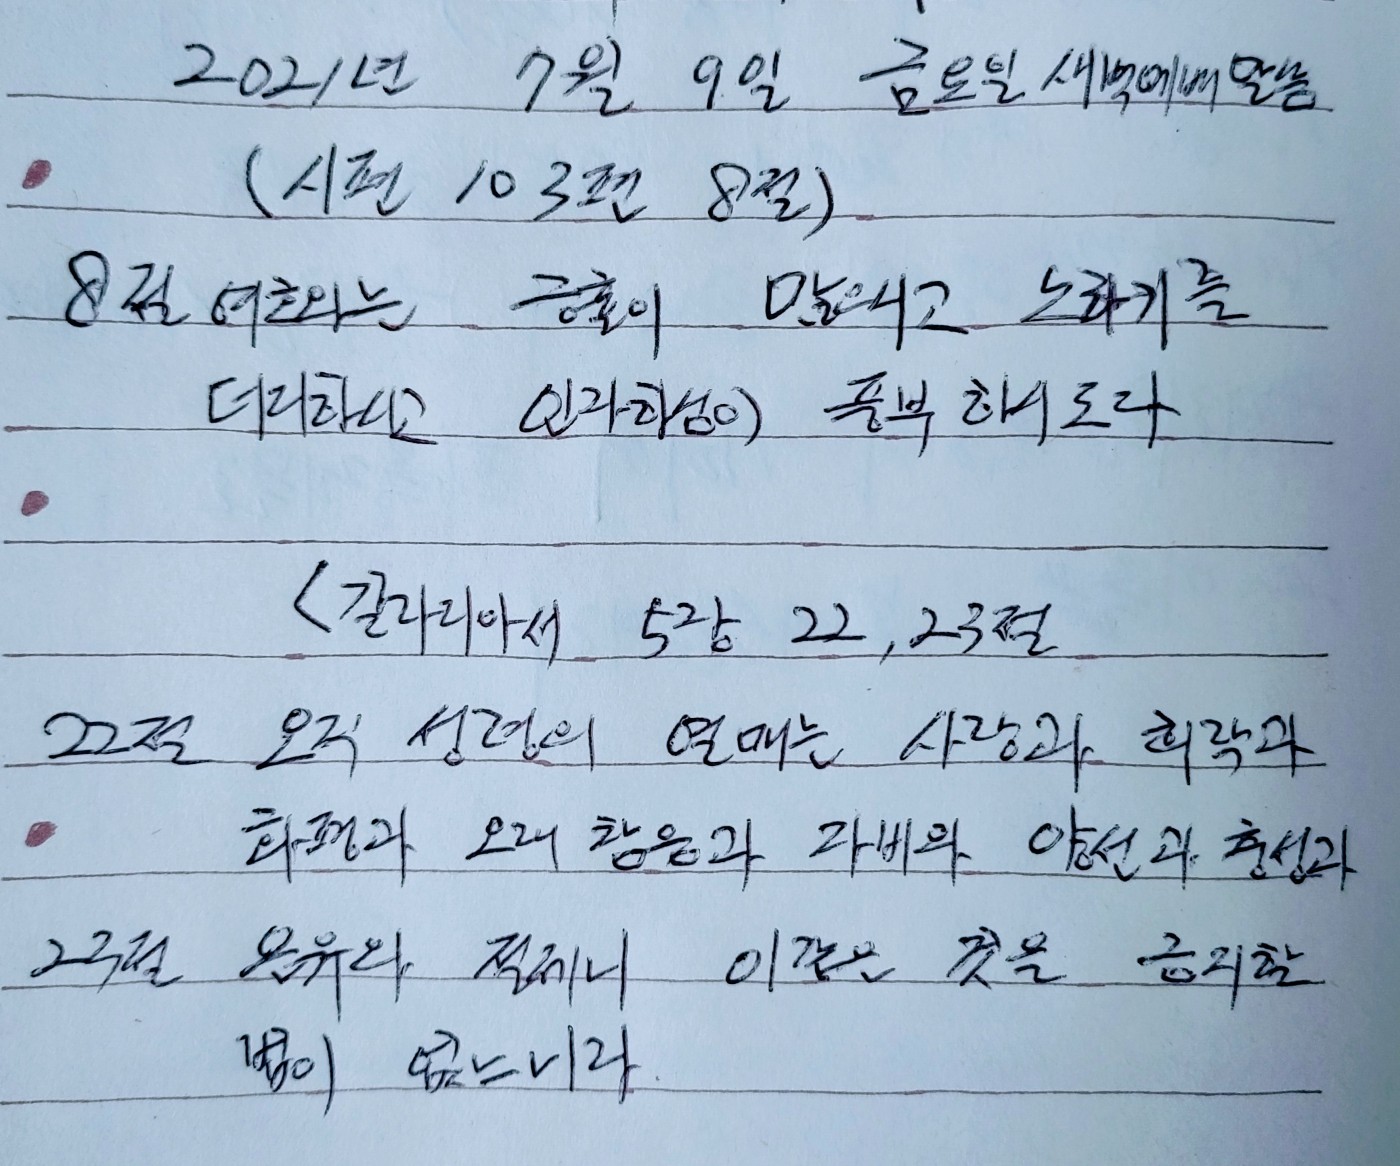 2021년 7월 9일 금요일 새벽예배 말씀
(시편 103편 8절)
8절 여호와는 긍휼이 많으시고 노하기를
더디하시고 인자하심이 풍부하시도다
<갈라디아서 5장 22, 23절
22절 오직 성령의 열매는 사랑과 희락과
화평과 오래 참음과 자비와 양선과 충성과
23절 온유와 절제니 이같은 것을 금지할
법이 없느니라.